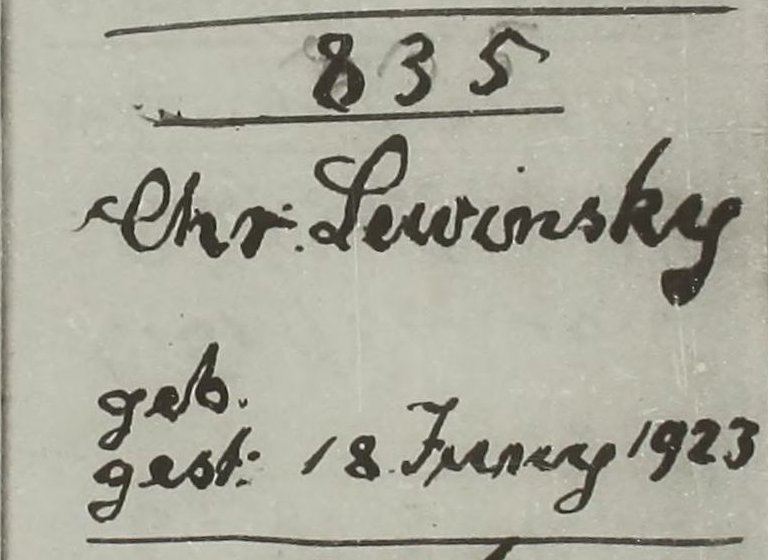 835
Chr. Lewinsky
geb.
gest: 18. Juny 1923